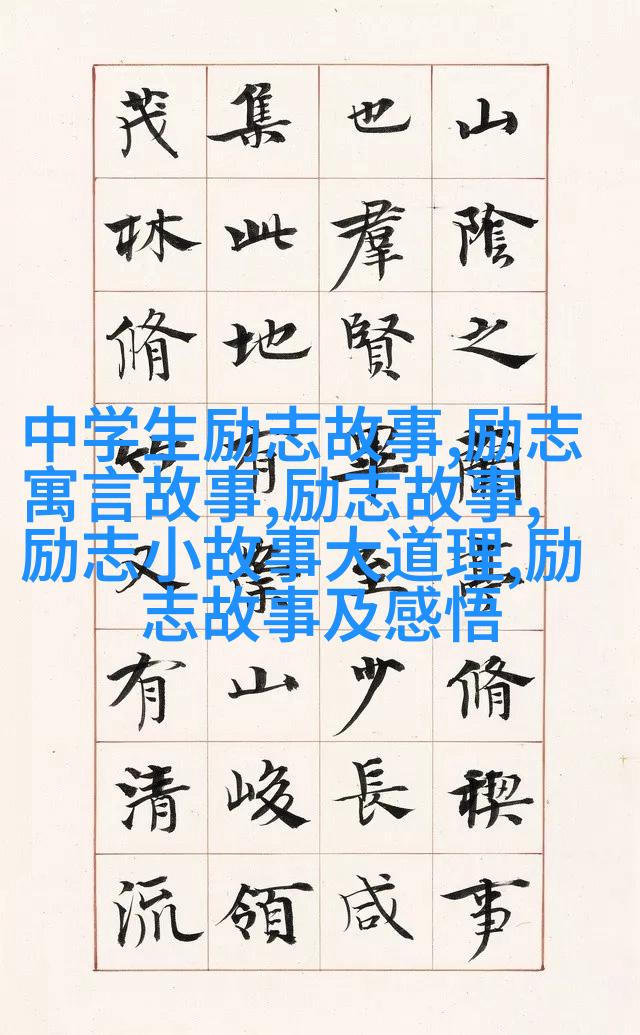 山陰之蘭亭脩稧事
也羣賢畢至少長咸
集此地有崇山峻領
茂林脩竹又有清流
中学生励志故事,励志
寓言故事,励志故事,
励志小故事大道理,励
志故事及感悟